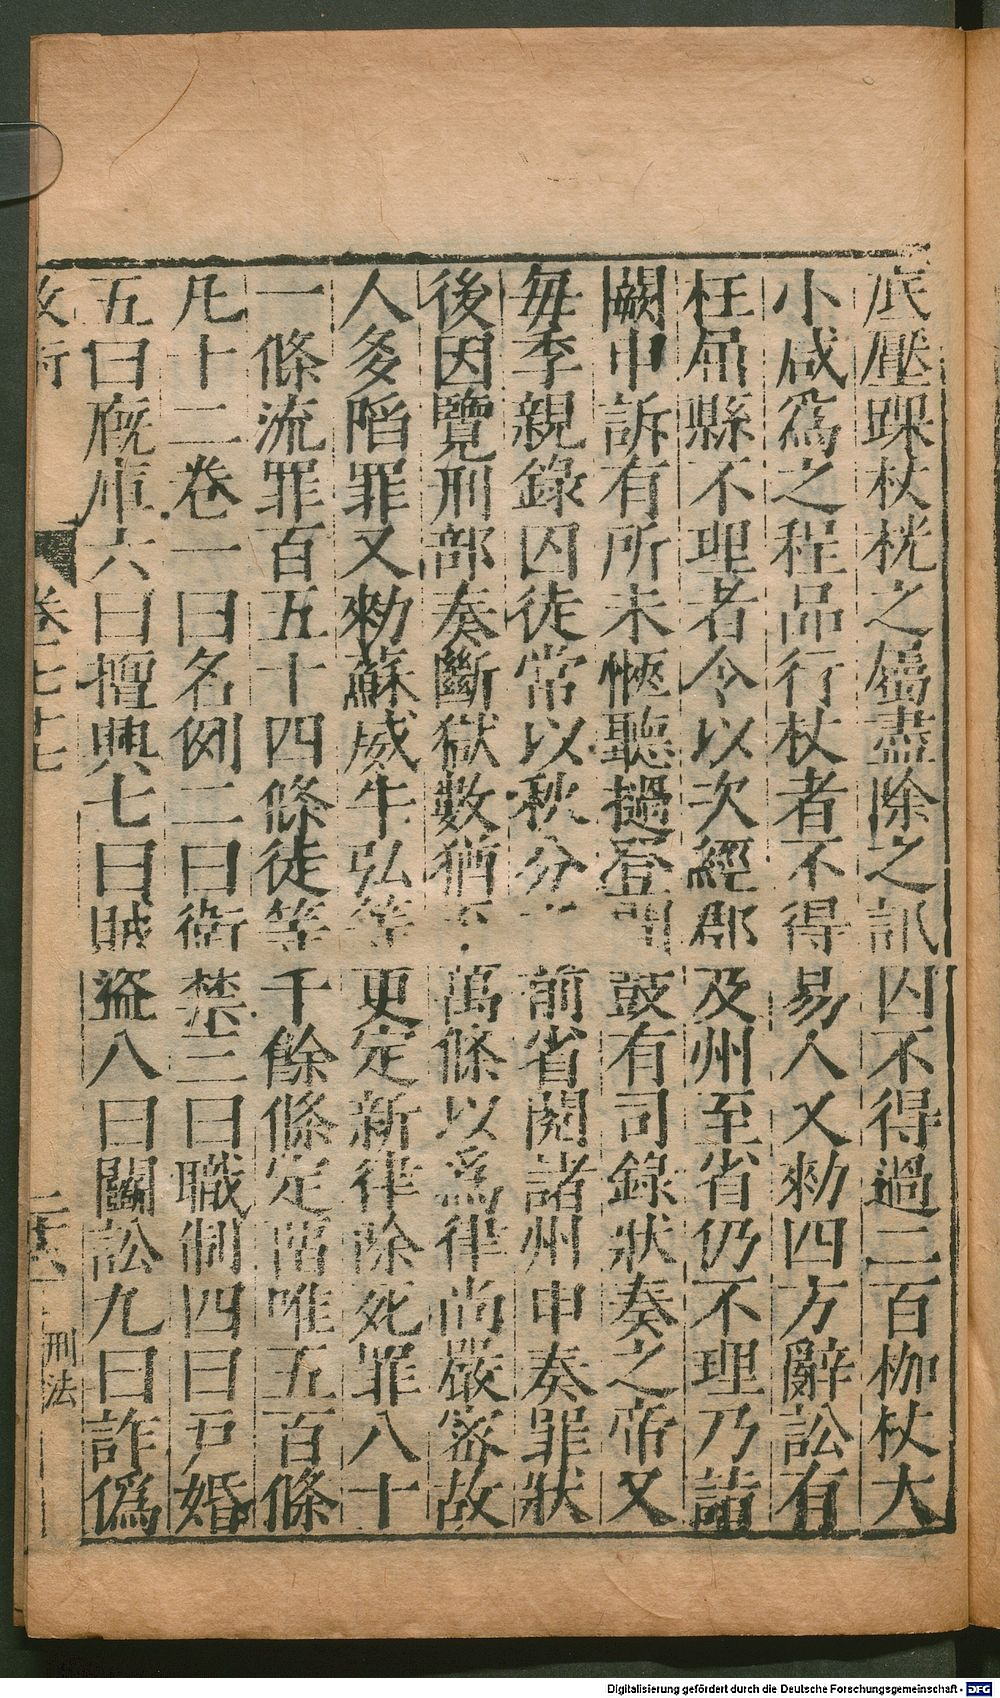 底壓踝杖桄之屬盡除之訊囚不得過二百枷杖大
小咸爲之程品行杖者不得易人又勑四方辭訟有
枉屈縣不理者令以次經郡及州至省仍不理乃詣
闕申訴有所未愜聽撾登聞鼓有司錄狀奏之帝又
每季親錄囚徒常以秋分之前省閱諸州申奏罪狀
後因覽刑部奏斷獄數猶至萬條以爲律尚嚴密故
人多陷罪又勑蘇威牛弘等更定新律除死罪八十
一條流罪百五十四條徒等千餘條定畱唯五百條
凡十二卷一曰名例二曰衛禁三曰職制四曰戸婚
五曰廐庫六曰擅興七曰賊盜八曰鬭訟九曰詐僞
卷七十七
刑法
Digitalisierung gefördert durch die Deutsche Forschungsgemeinschaft - DFG